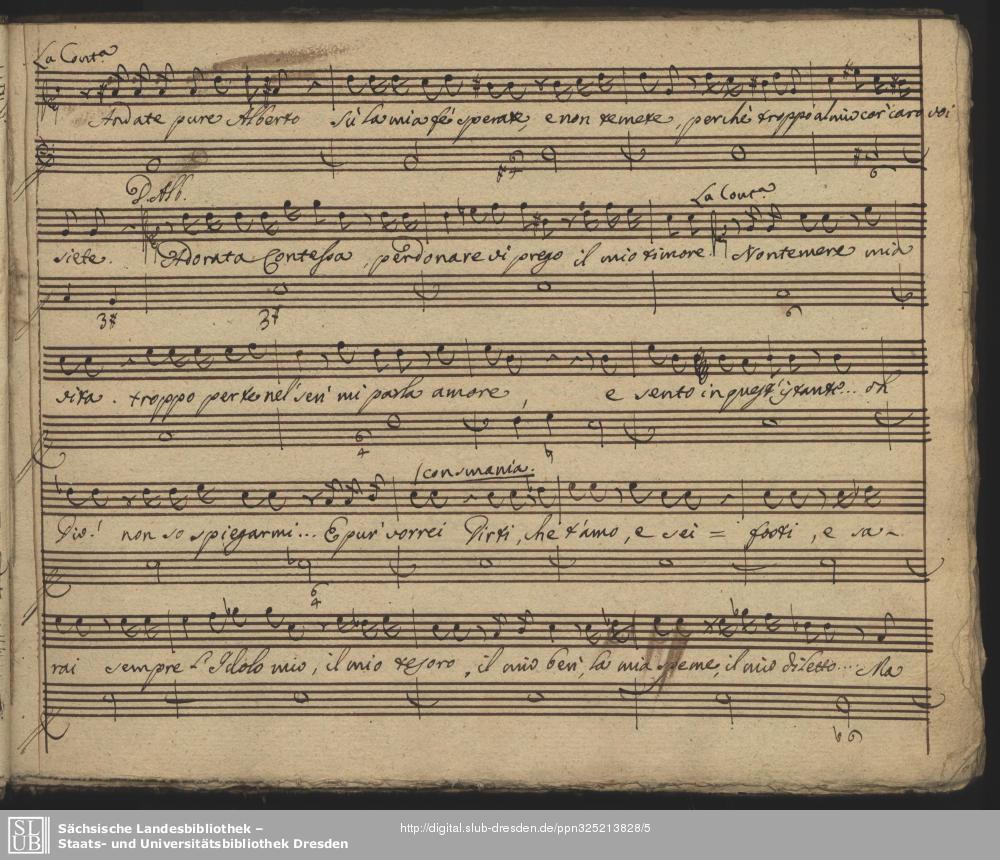 La Cont.a
Andate pure Alberto sù la mia fè sperate, e non temete, perchè troppo al mio cor caro voi
6
D. Alb.
La Cont.a
siete. Adorata Contessa, perdonare vi prego il mio timore. Non temere mia
3# 3# 6
vita. troppo per te nel sen mi parla amore, e sento in quest'istante... oh
6
4
(con smania.
Dio! non so spiegarmi... E pur vorrei Dirti, che t'amo, e sei = fosti, e sa-
6
4
rai sempre l'Idolo mio, il mio tesoro, il mio ben, la mia speme, il mio diletto... Ma
b 6
SLUB
Sächsische Landesbibliothek –
Staats- und Universitätsbibliothek Dresden
http://digital.slub-dresden.de/ppn325213828/5